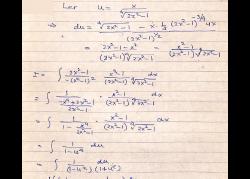 Let u = x / ∜(2x²-1)
⇒ du = (∜(2x²-1) - x·¼ (2x²-1)^(-3/4) 4x) / (2x²-1)^(1/2)
= (2x²-1-x²) / ((2x²-1) ∜(2x²-1)) = (x²-1) / ((2x²-1) ∜(2x²-1))
I = ∫ (2x²-1) / (-(x²-1)²) · (x²-1) / ((2x²-1) ∜(2x²-1)) dx
= ∫ 1 / ((-x⁴+2x²-1) / (2x²-1)) · (x²-1) / ((2x²-1) ∜(2x²-1)) dx
= ∫ 1 / (1 - x⁴/(2x²-1)) · (x²-1) / ((2x²-1) ∜(2x²-1)) dx
= ∫ 1 / (1-u⁴) du
= ∫ 1 / ((1-u²)(1+u²)) du